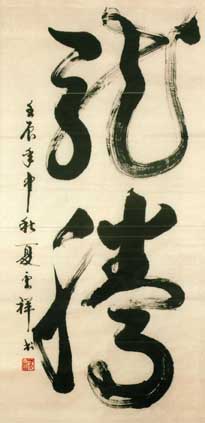 龍騰
壬辰年中秋夏雲祥书